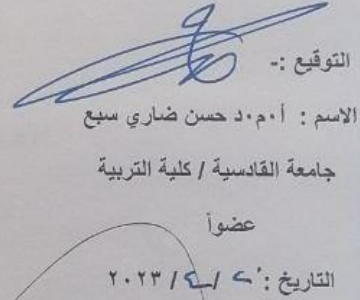 التوقيع :-
الاسم : أ.م.د حسن ضاري سبع
جامعة القادسية / كلية التربية
عضواً
التاريخ : / / ٢٠٢٣